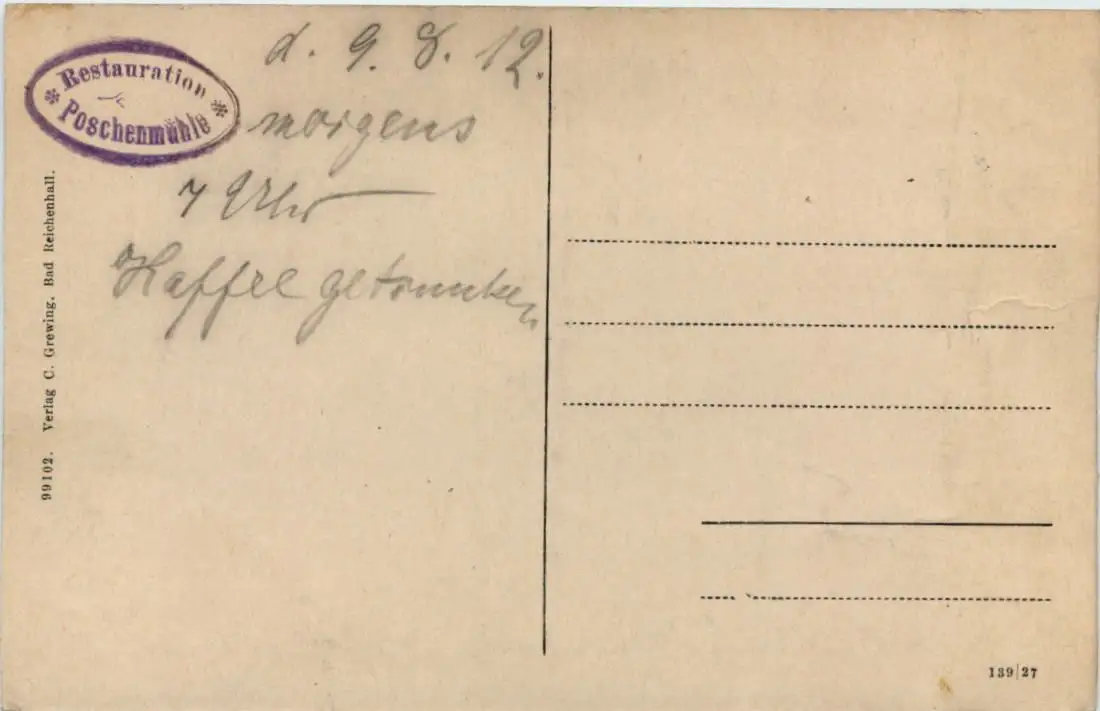 Restauration
* Poschenmühle *
d. 9. 8. 12.
morgens
7 Uhr
Kaffee getrunken
99102. Verlag C. Grewing, Bad Reichenhall.
139/27